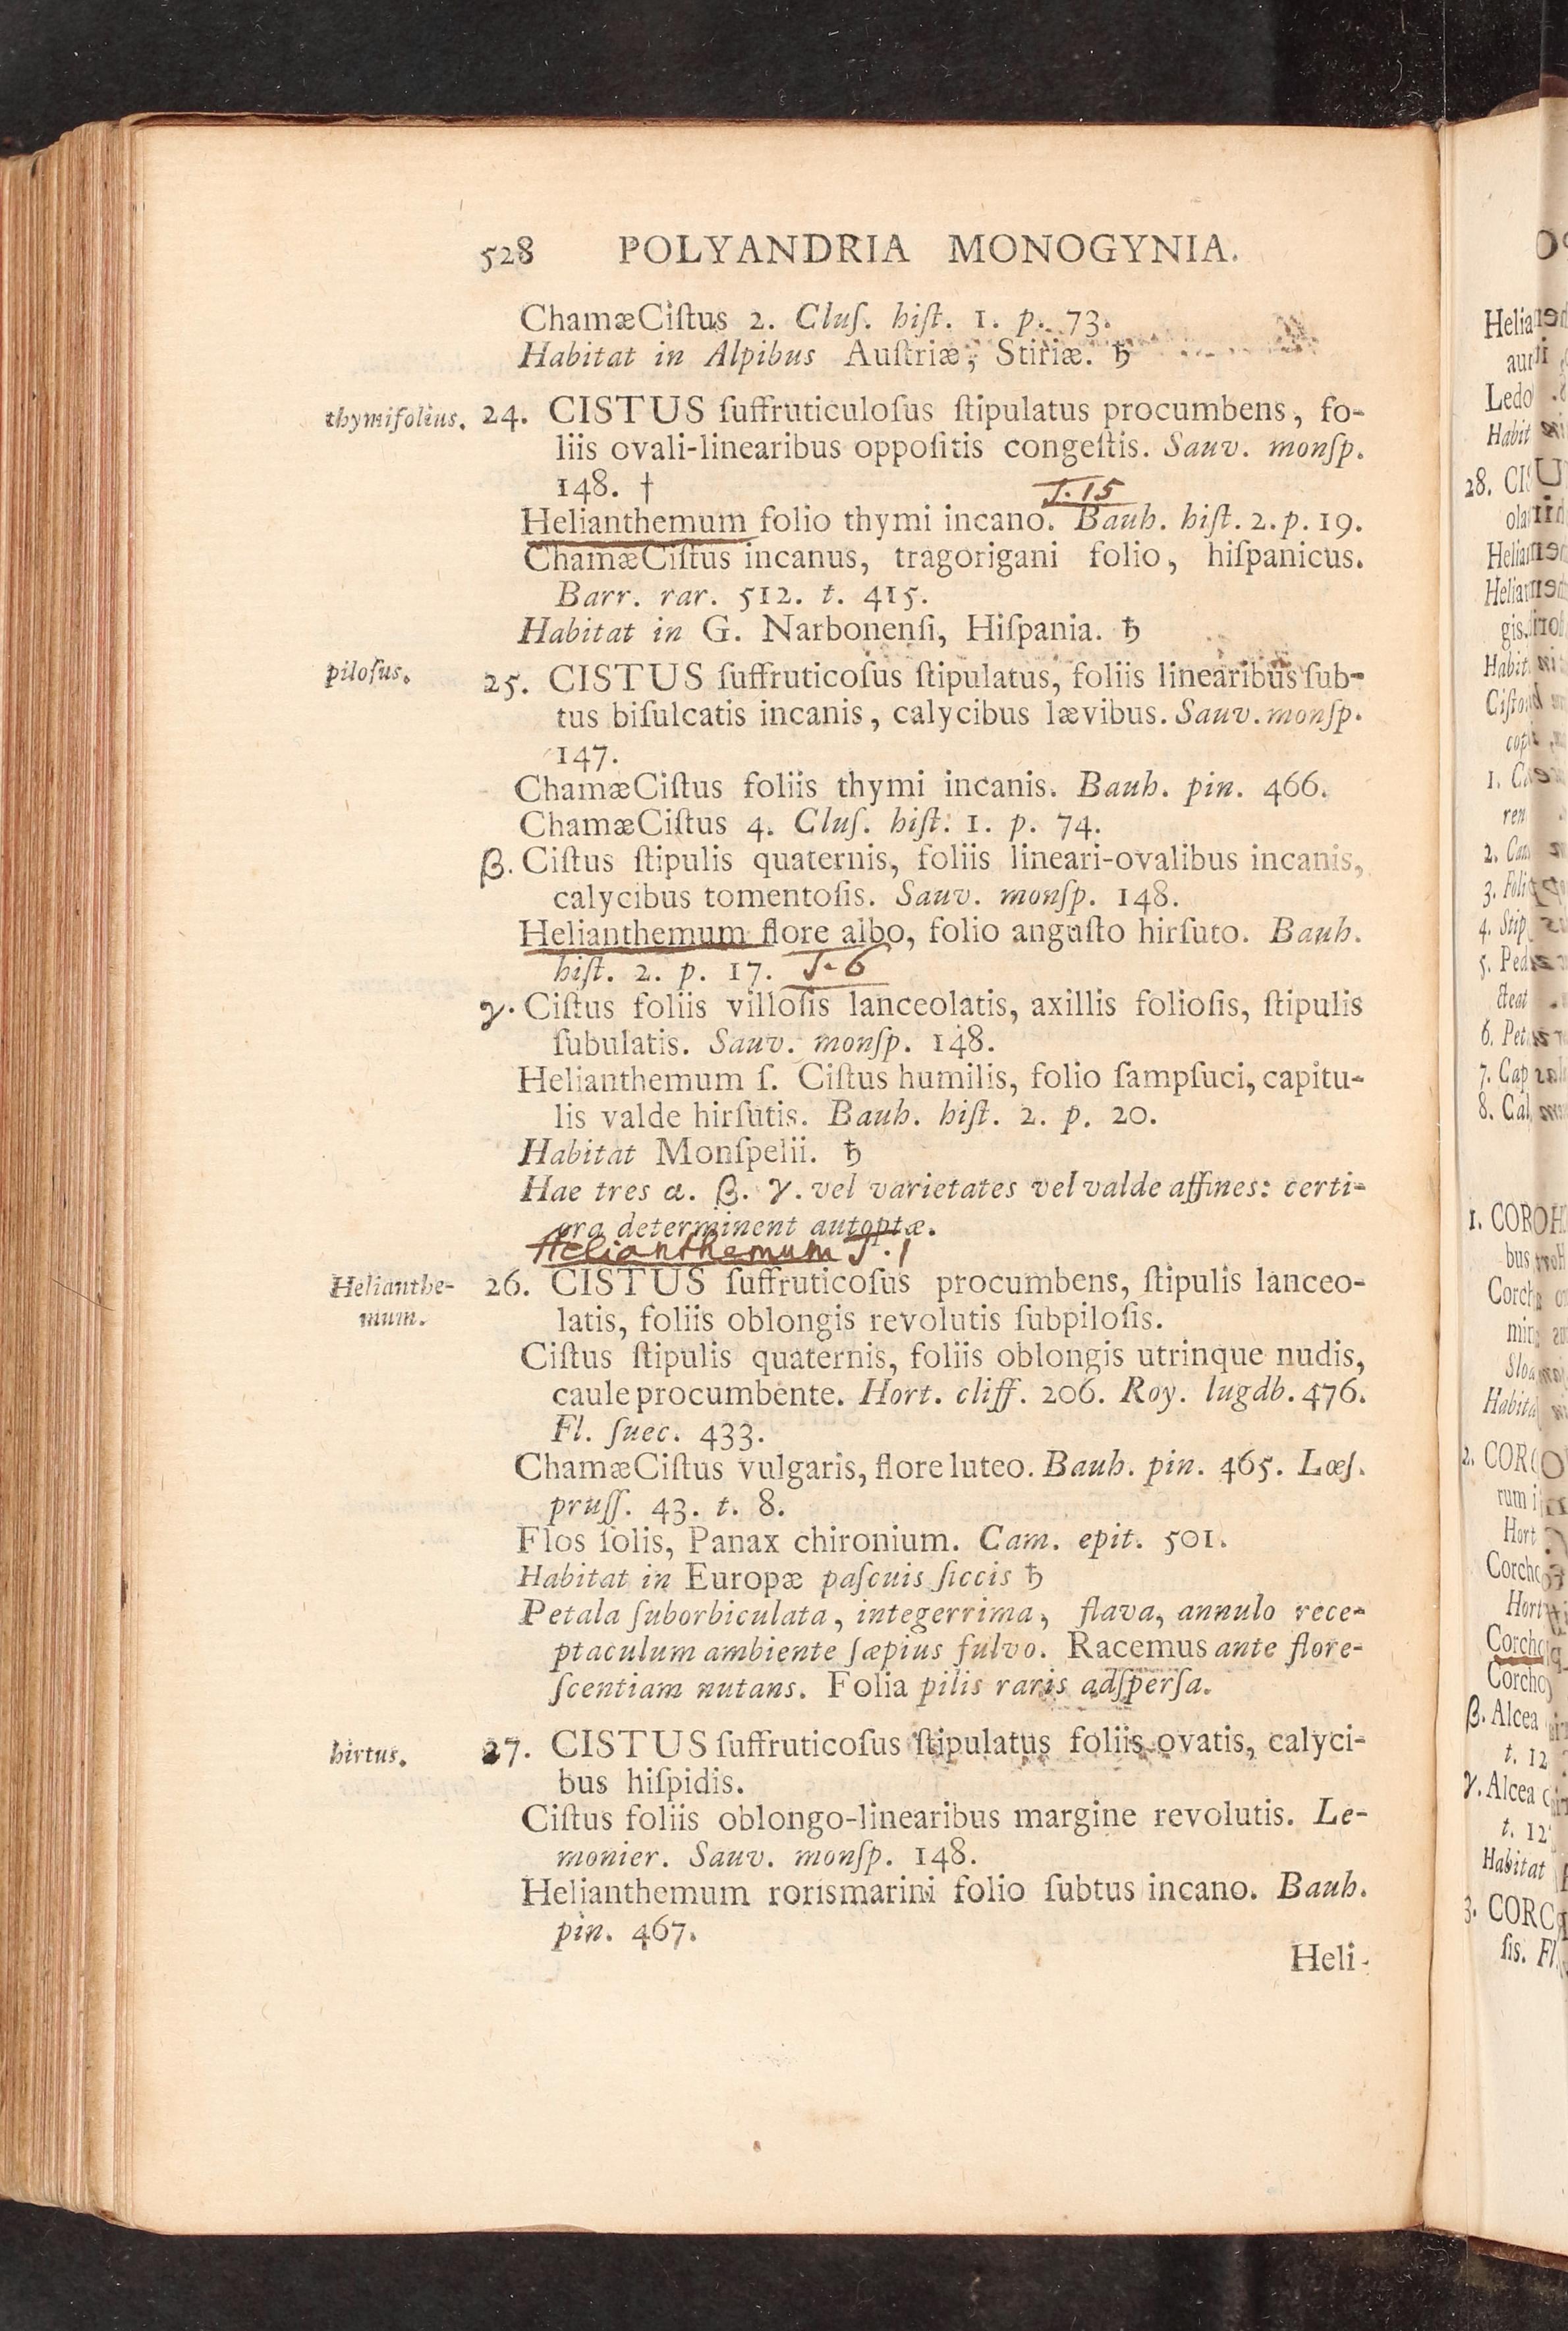 528 POLYANDRIA MONOGYNIA.
ChamæCiſtus 2. Cluſ. hiſt. 1. p. 73.
Habitat in Alpibus Auſtriæ, Stiriæ. ♄
thymifolius. 24. CISTUS ſuffruticuloſus ſtipulatus procumbens, fo-
liis ovali-linearibus oppoſitis congeſtis. Sauv. monſp.
148. †
T. 15
Helianthemum folio thymi incano. Bauh. hiſt. 2. p. 19.
ChamæCiſtus incanus, tragorigani folio, hiſpanicus.
Barr. rar. 512. t. 415.
Habitat in G. Narbonenſi, Hiſpania. ♄
piloſus. 25. CISTUS ſuffruticoſus ſtipulatus, foliis linearibus ſub-
tus biſulcatis incanis, calycibus lævibus. Sauv. monſp.
147.
ChamæCiſtus foliis thymi incanis. Bauh. pin. 466.
ChamæCiſtus 4. Cluſ. hiſt. 1. p. 74.
β. Ciſtus ſtipulis quaternis, foliis lineari-ovalibus incanis,
calycibus tomentoſis. Sauv. monſp. 148.
Helianthemum flore albo, folio anguſto hirſuto. Bauh.
hiſt. 2. p. 17. T. 6
γ. Ciſtus foliis villoſis lanceolatis, axillis folioſis, ſtipulis
ſubulatis. Sauv. monſp. 148.
Helianthemum ſ. Ciſtus humilis, folio ſampſuci, capitu-
lis valde hirſutis. Bauh. hiſt. 2. p. 20.
Habitat Monſpelii. ♄
Hae tres α. β. γ. vel varietates vel valde affines: certi-
ora determinent autoptæ.
Helianthemum T. 1
Helianthe- 26. CISTUS ſuffruticoſus procumbens, ſtipulis lanceo-
mum. latis, foliis oblongis revolutis ſubpiloſis.
Ciſtus ſtipulis quaternis, foliis oblongis utrinque nudis,
caule procumbente. Hort. cliff. 206. Roy. lugdb. 476.
Fl. ſuec. 433.
ChamæCiſtus vulgaris, flore luteo. Bauh. pin. 465. Lœſ.
pruſſ. 43. t. 8.
Flos ſolis, Panax chironium. Cam. epit. 501.
Habitat in Europæ paſcuis ſiccis ♄
Petala ſuborbiculata, integerrima, flava, annulo rece-
ptaculum ambiente ſæpius fulvo. Racemus ante flore-
ſcentiam nutans. Folia pilis raris adſperſa.
hirtus. 27. CISTUS ſuffruticoſus ſtipulatus foliis ovatis, calyci-
bus hiſpidis.
Ciſtus foliis oblongo-linearibus margine revolutis. Le-
monier. Sauv. monſp. 148.
Helianthemum rorismarini folio ſubtus incano. Bauh.
pin. 467.
Heli-